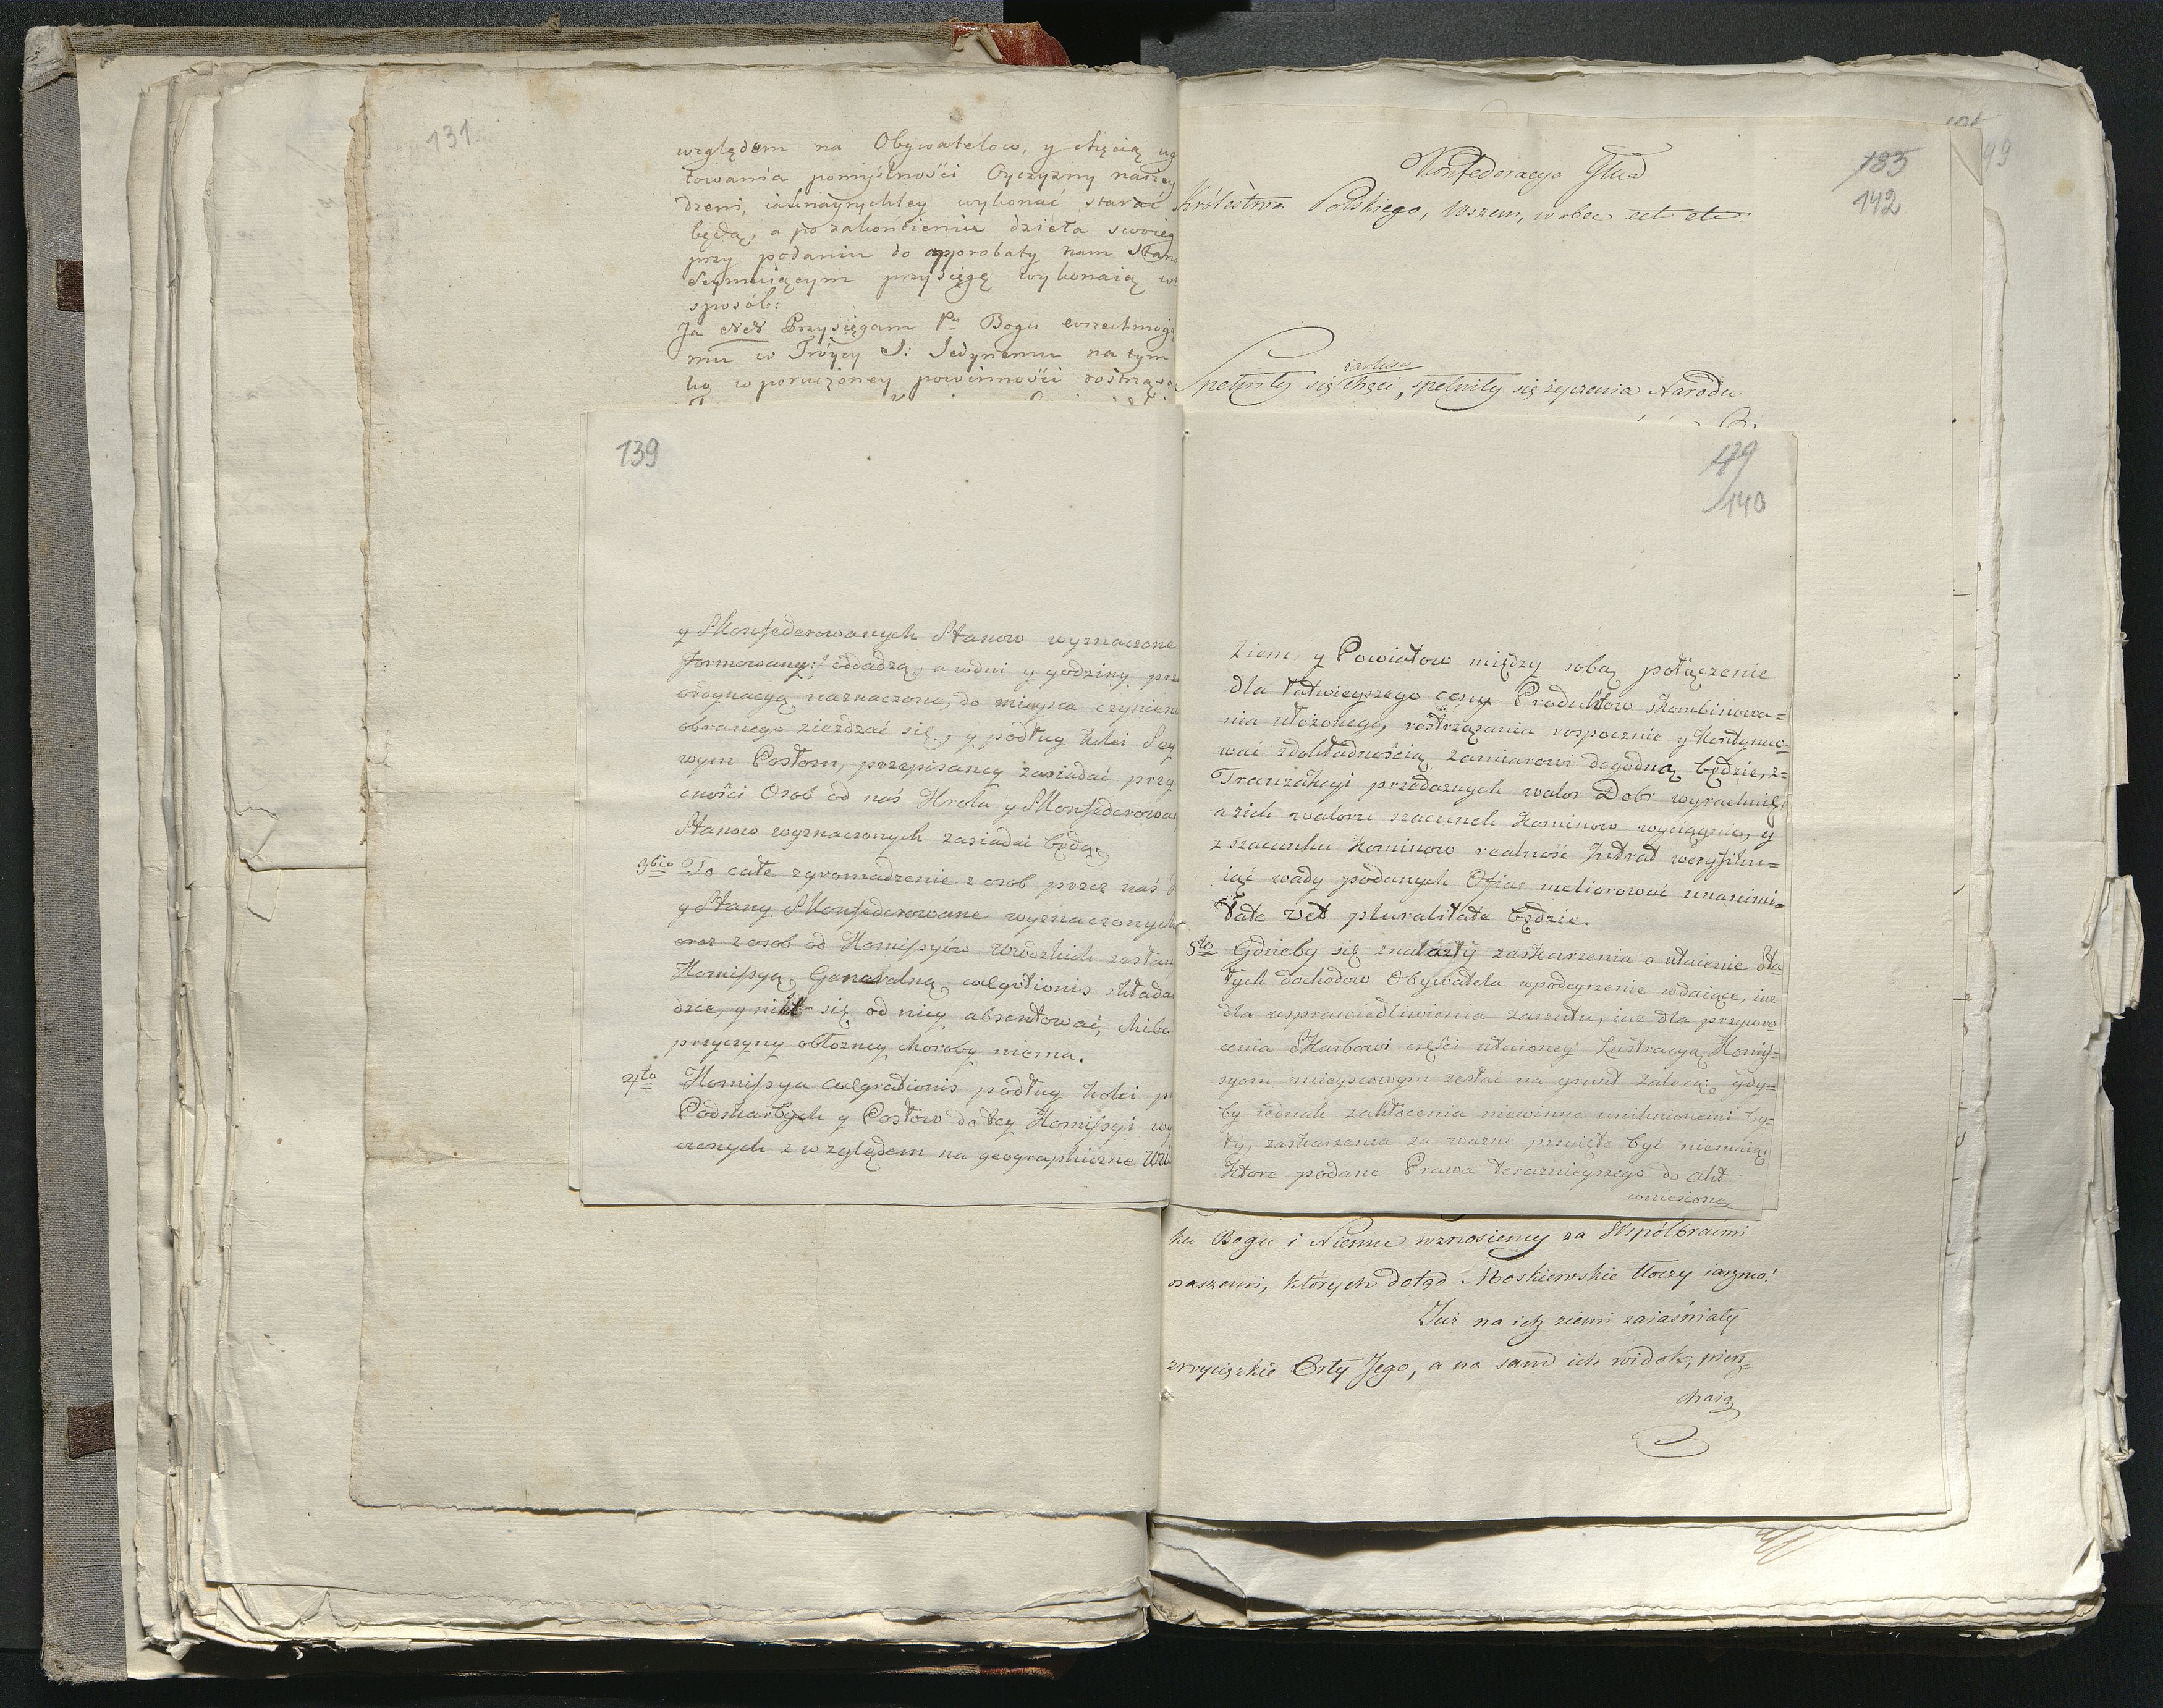 131
względem na Obywatelow, y chęcią ug
towania pomyślności Oyczyzny naszey
dzeni, iaknayrychley wykonać starać
będą, a po zakończeniu dzieła swoieg
przy podaniu do approbaty nam Stan
Seymuiącym przysięgę wykonaią w
sposób:
Ja NN Przysięgam Pu Bogu wszechmogą
mu w Tróycy S: Jedynemu na tym
ko w poruczoney powinności roztrząsa
139
y Skonfederowanych Stanow wyznaczone
formowany:/ oddadzą, a w dni y godziny prz
ordynacyą naznaczone, do mieysca czynien
obranego zieżdzać się, y podług kolei Sey
wym Posłom, przepisaney zasiadać przy
cności Osob od nas Krola y Skonfederowa
Stanow wyznaczonych zasiadać będą.
3tio To całe zgromadzenie z osob przez nas
y Stany Skonfederowane wyznaczonych
oraz z osob od Komissyów Wwdzkich zesłan
Komissyą Generalną coæqutionis składa
dzie, y nikt się od niey absentować, chiba
przyczyny obłożney choroby niema.
4to Komissya coæqrationis podług kolei p
Podskarbych y Posłow do tey Komissyi wy
czonych z względem na geographiczne Wwd
183
142
99
Konfederacya Gład
Królestwa Polskiego, Wszem, wobec ect etc:
Spełniły się chęci, spełniły się życzenia Narodu
179
140
Ziem, y Powiatow między sobą połączenie
dla łatwieyszego ceny Produktow skombinowa=
nia ułożonego, roztrząsania rospocznie y kontynuo=
wać z dokładnością zamiarowi dogodną będzie, z=
Tranzakcyi przedaznych walor Dobr wyrachuie,
a zich waloru szacunek Kominow wyciągnie, y
z szacunku Kominow realność Intrat weryfiku=
iąć wady podanych Ofiar meliorować unanimi=
tate vel pluralitate będzie.
5to Gdzieby się znalazły zaskarzenia o utaienie sta
łych dochodow Obywatela w podeyrzenie wdaiące, iuz
dla usprawiedliwienia zarzutu, iuz dla przywro
cenia Skarbowi części utaioney Lustracyą Komis=
syom mieyscowym zesłać na grunt zaleca: gdy=
by iednak zakłócenia niewinne uniknionemi by=
ły, zaskarzenia za wazne przyięte być niemaią
Ktore podane Prawa teraznieyszego do akt
wniesione
ku Bogu i Niemu wznosiemy za Współbraćmi
naszemi, których dotąd Moskiewskie tłoczy iarzmo!
Już na ich ziemi zaiaśniały
zwycięzkie Orły Jego, a na sam ich widok, pierz=
chaią